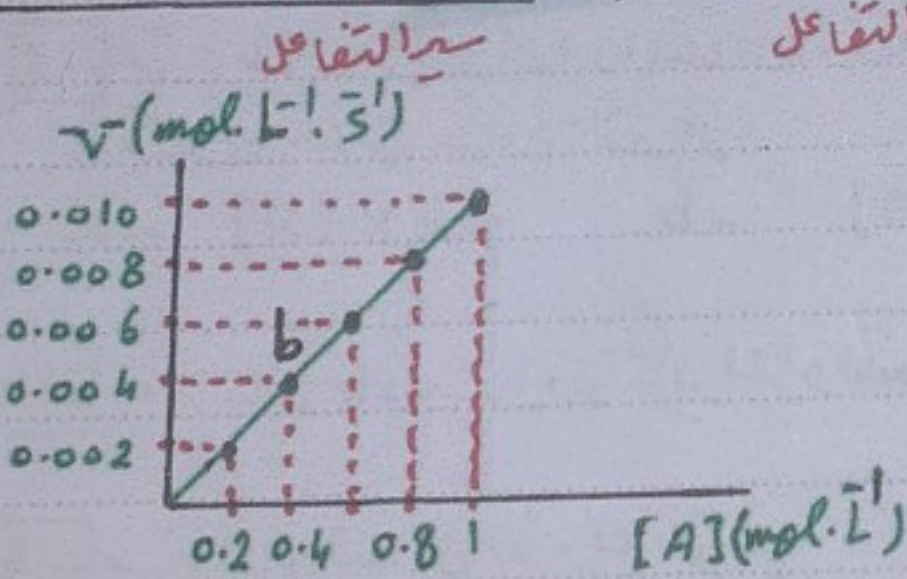 سير التفاعل
التفاعل
v (mol. L⁻¹. s⁻¹)
0.010
0.008
0.006
b
0.004
0.002
0.2 0.4 0.8 1
[A] (mol. L⁻¹)